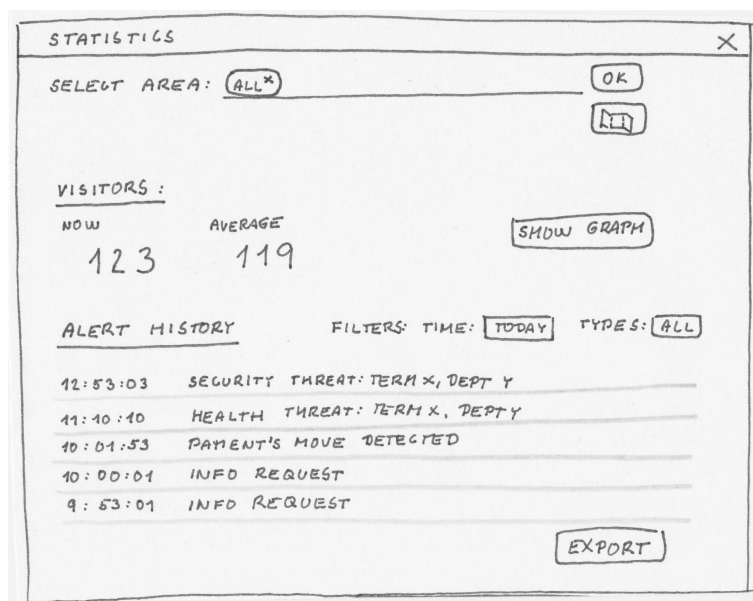 STATISTICS X
SELECT AREA: ALL x OK
VISITORS:
NOW AVERAGE
123 119 SHOW GRAPH
ALERT HISTORY FILTERS: TIME: TODAY TYPES: ALL
12:53:03 SECURITY THREAT: TERM X, DEPT Y
11:10:10 HEALTH THREAT: TERM X, DEPT Y
10:01:53 PATIENT'S MOVE DETECTED
10:00:01 INFO REQUEST
9:53:01 INFO REQUEST
EXPORT